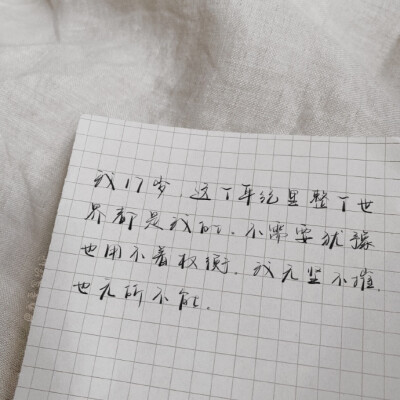 我17岁,这个年纪里整个世
界都是我的.不需要犹豫
也用不着权衡.我无坚不摧.
也无所不能.